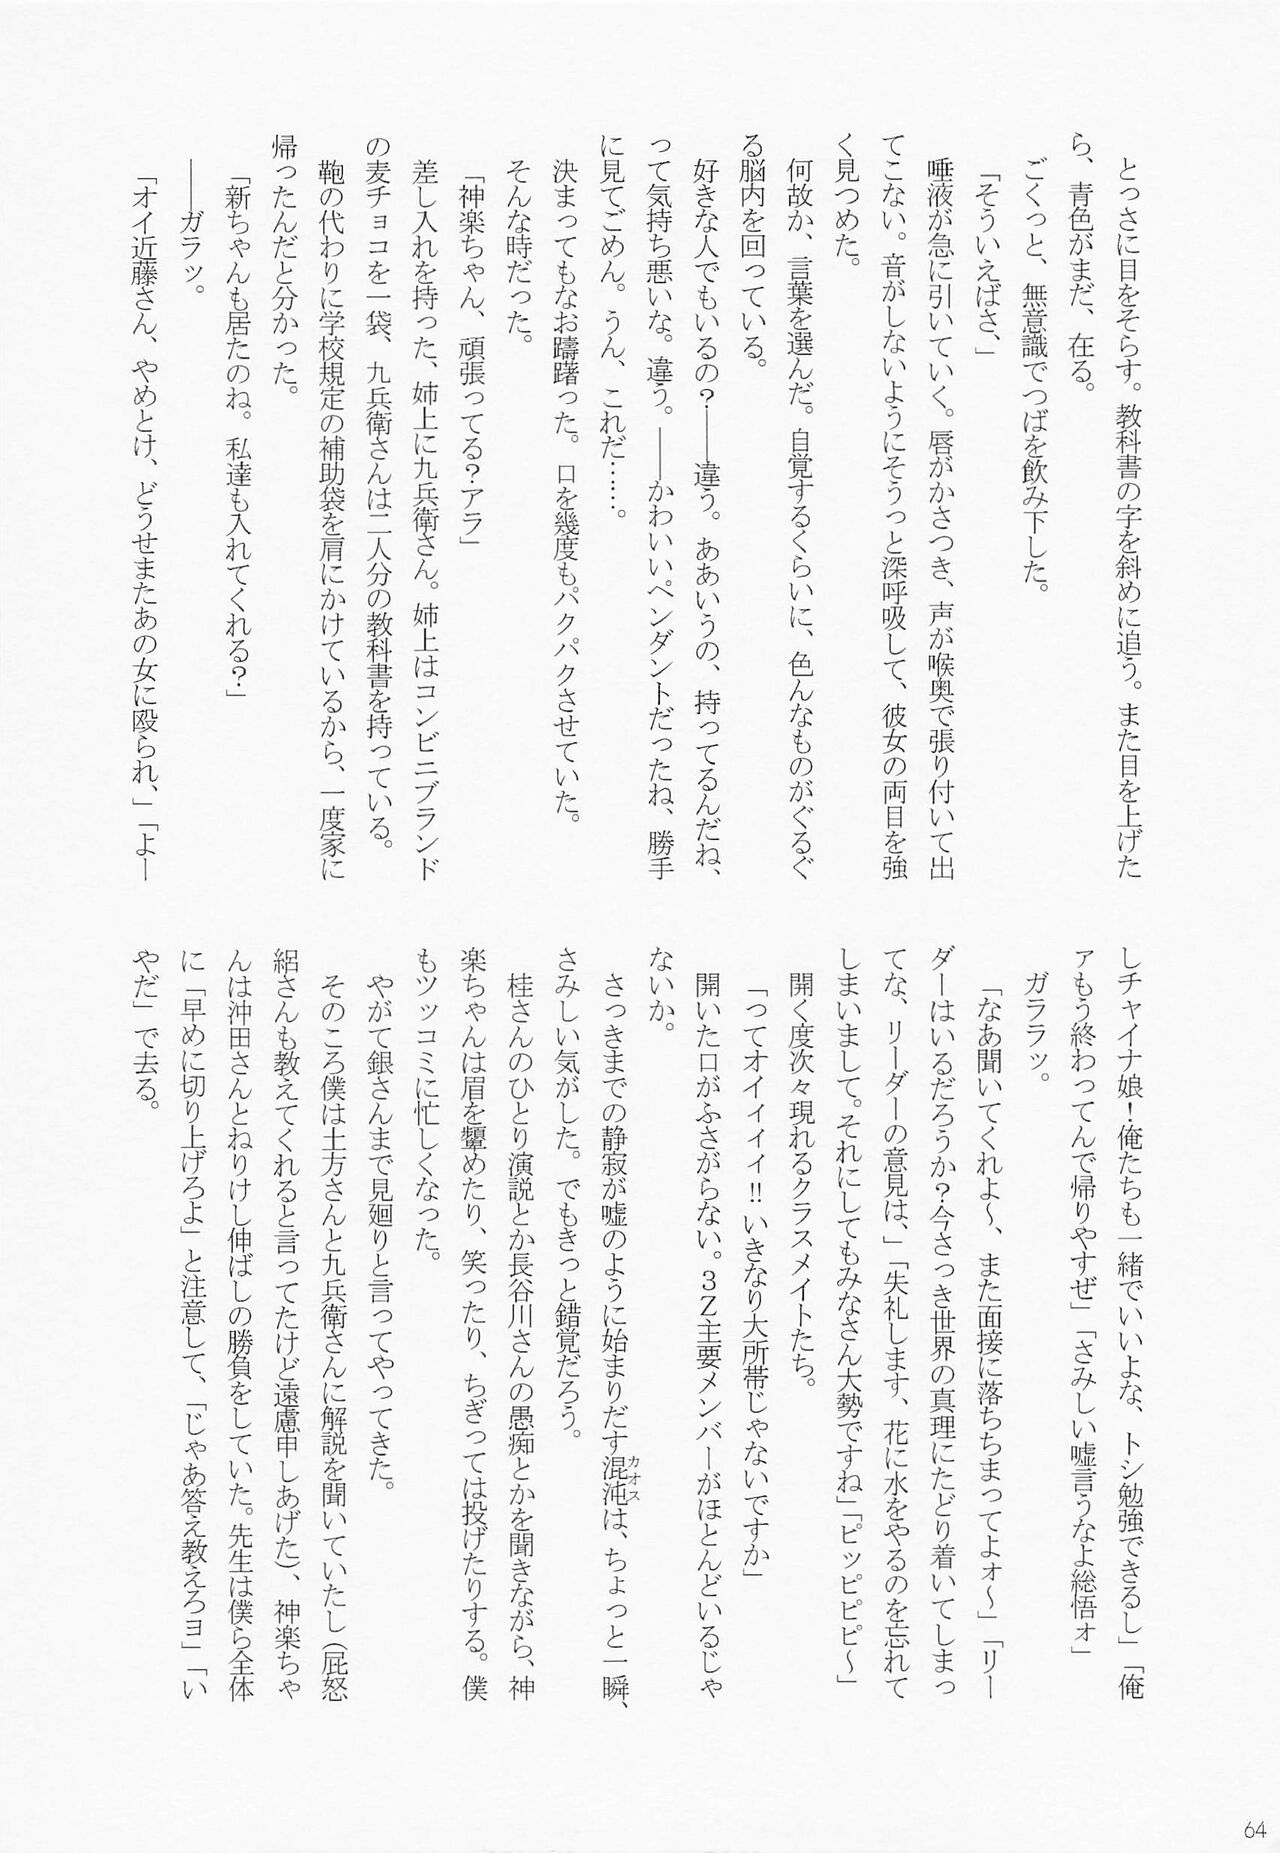 とっさに目をそらす。教科書の字を斜めに追う。また目を上げた
ら、青色がまだ、在る。
ごくっと、無意識でつばを飲み下した。
「そういえばさ、」
唾液が急に引いていく。唇がかさつき、声が喉奥で張り付いて出
てこない。音がしないようにそうっと深呼吸して、彼女の両目を強
く見つめた。
何故か、言葉を選んだ。自覚するくらいに、色んなものがぐるぐ
る脳内を回っている。
好きな人でもいるの？――違う。ああいうの、持ってるんだね、
って気持ち悪いな。違う。――かわいいペンダントだったね、勝手
に見てごめん。うん、これだ……。
決まってもなお躊躇った。口を幾度もパクパクさせていた。
そんな時だった。
「神楽ちゃん、頑張ってる？アラ」
差し入れを持った、姉上に九兵衛さん。姉上はコンビニブランド
の麦チョコを一袋、九兵衛さんは二人分の教科書を持っている。
鞄の代わりに学校規定の補助袋を肩にかけているから、一度家に
帰ったんだと分かった。
「新ちゃんも居たのね。私達も入れてくれる？」
――ガラッ。
「オイ近藤さん、やめとけ、どうせまたあの女に殴られ、」「よー
しチャイナ娘！俺たちも一緒でいいよな、トシ勉強できるし」「俺
ァもう終わってんで帰りやすぜ」「さみしい嘘言うなよ総悟ォ」
ガララッ。
「なあ聞いてくれよ～、また面接に落ちちまってよォ～」「リー
ダーはいるだろうか？今さっき世界の真理にたどり着いてしまっ
てな、リーダーの意見は、」「失礼します、花に水をやるのを忘れて
しまいまして。それにしてもみなさん大勢ですね」「ピッピピピ～」
開く度次々現れるクラスメイトたち。
「ってオイィィィ!! いきなり大所帯じゃないですか」
開いた口がふさがらない。３Ｚ主要メンバーがほとんどいるじゃ
ないか。
さっきまでの静寂が嘘のように始まりだす混沌カオスは、ちょっと一瞬、
さみしい気がした。でもきっと錯覚だろう。
桂さんのひとり演説とか長谷川さんの愚痴とかを聞きながら、神
楽ちゃんは眉を顰めたり、笑ったり、ちぎっては投げたりする。僕
もツッコミに忙しくなった。
やがて銀さんまで見廻りと言ってやってきた。
そのころ僕は土方さんと九兵衛さんに解説を聞いていたし（屁怒
絽さんも教えてくれると言ってたけど遠慮申しあげた）、神楽ちゃ
んは沖田さんとねりけし伸ばしの勝負をしていた。先生は僕ら全体
に「早めに切り上げろよ」と注意して、「じゃあ答え教えろヨ」「い
やだ」で去る。
64